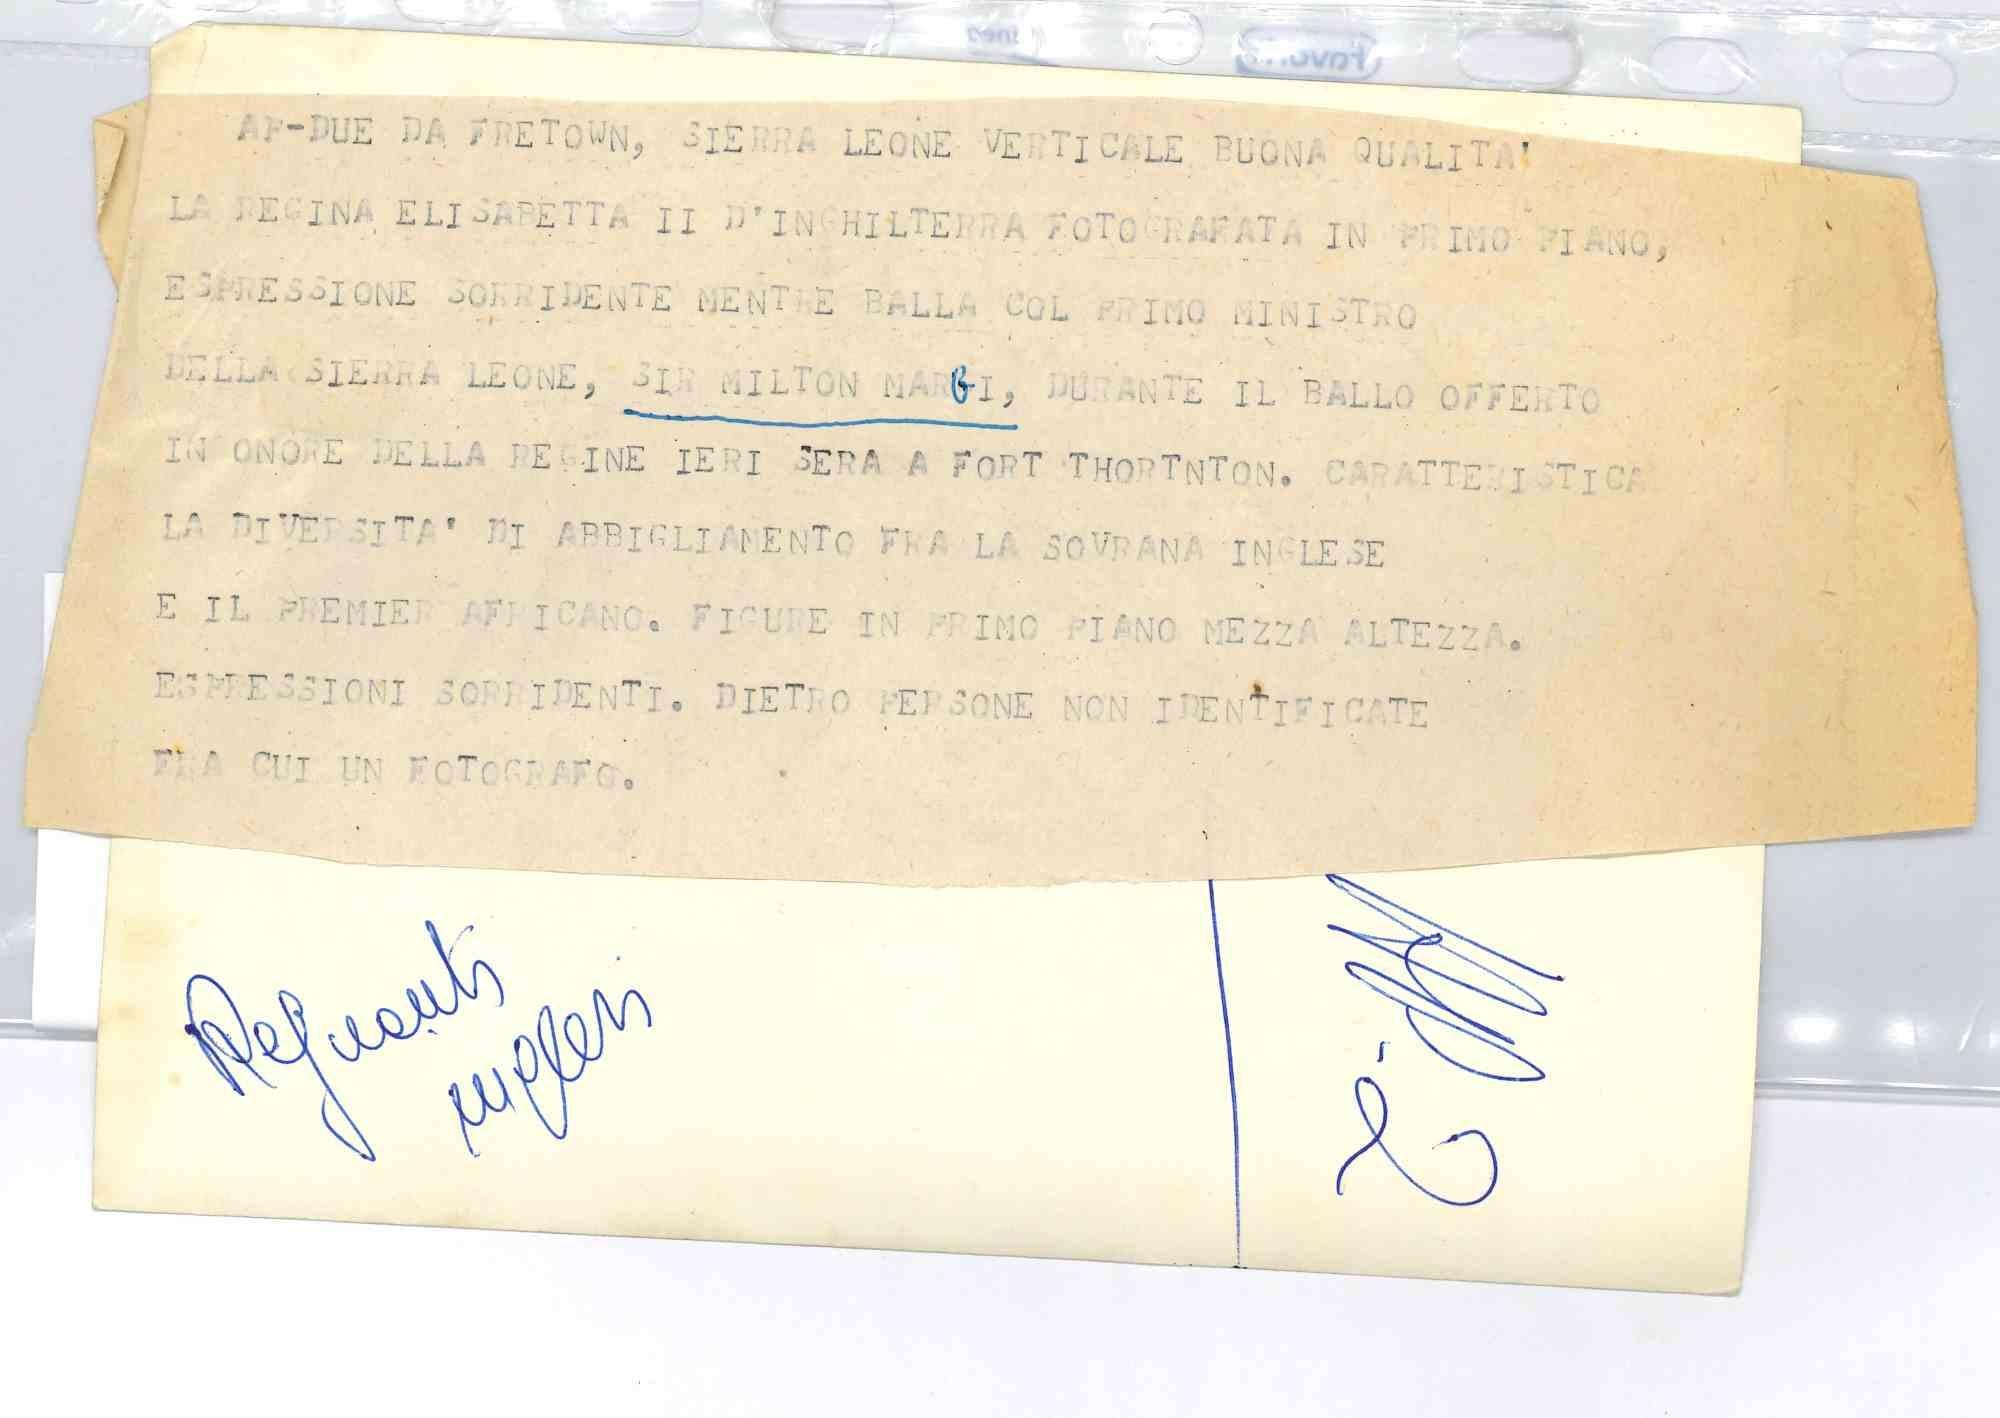 AF-DUE DA FRETOWN, SIERRA LEONE VERTICALE BUONA QUALITA'
LA REGINA ELISABETTA II D'INGHILTERRA FOTOGRAFATA IN PRIMO PIANO,
ESPRESSIONE SORRIDENTE MENTRE BALLA COL PRIMO MINISTRO
DELLA SIERRA LEONE, SIR MILTON MARGI, DURANTE IL BALLO OFFERTO
IN ONORE DELLA REGINE IERI SERA A FORT THORTNTON. CARATTERISTICA
LA DIVERSITA' DI ABBIGLIAMENTO FRA LA SOVRANA INGLESE
E IL PREMIER AFRICANO. FIGURE IN PRIMO PIANO MEZZA ALTEZZA.
ESPRESSIONI SORRIDENTI. DIETRO PERSONE NON IDENTIFICATE
FRA CUI UN FOTOGRAFO.
Regnanti
inglesi